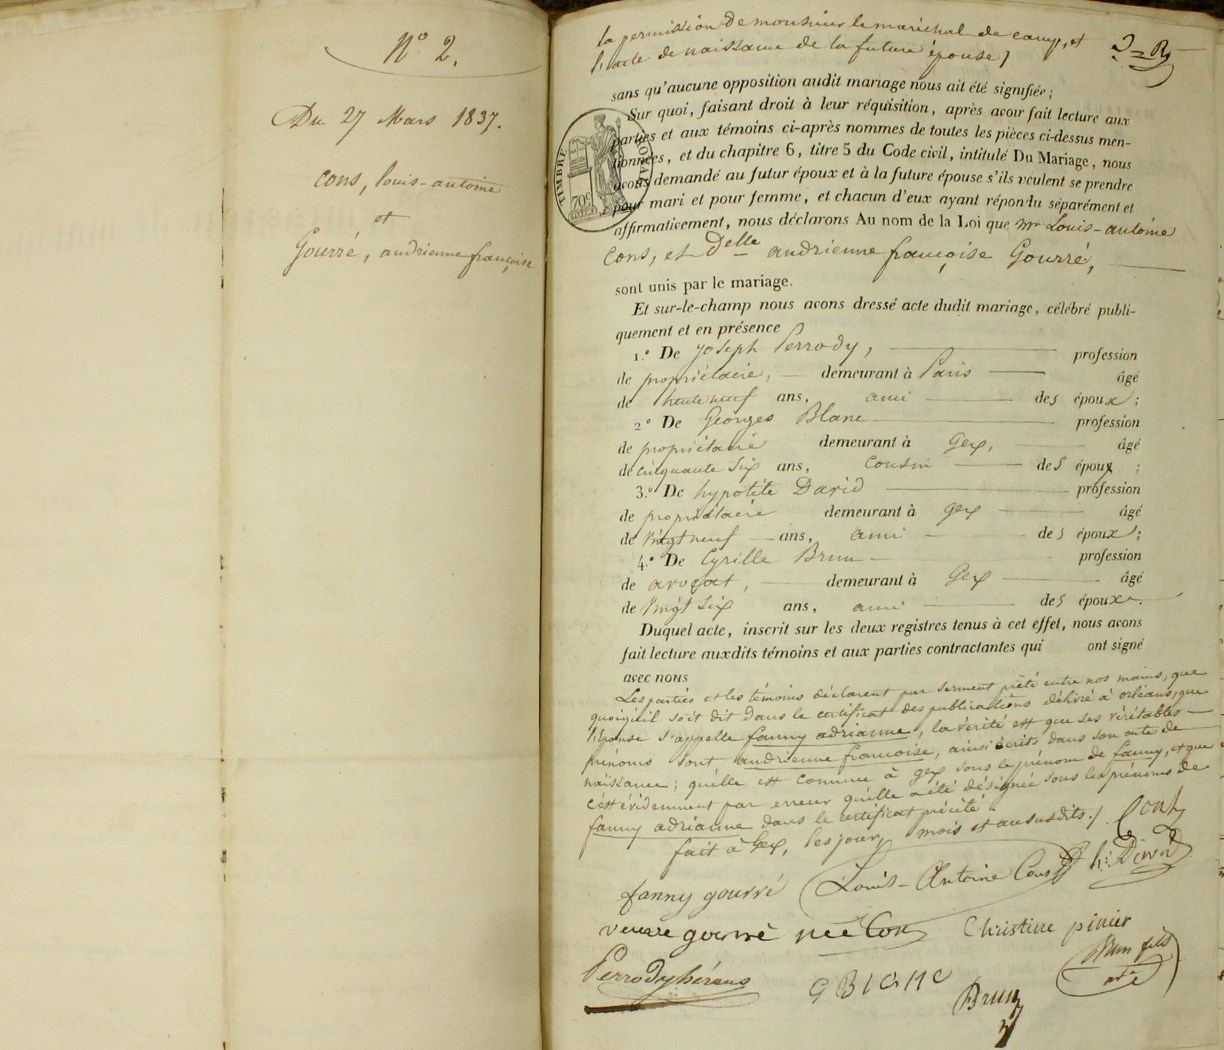 N° 2.
Du 27 Mars 1837.
Cons, louis-antoine
et
Gourré, andrienne françoise
la permission de monsieur le maréchal de camp, et
l'acte de naissance de la future épouse /
sans qu'aucune opposition audit mariage nous ait été signifiée ;
Sur quoi, faisant droit à leur réquisition, après avoir fait lecture aux
parties et aux témoins ci-après nommes de toutes les pièces ci-dessus men-
tionnées, et du chapitre 6, titre 5 du Code civil, intitulé Du Mariage, nous
avons demandé au futur époux et à la future épouse s'ils veulent se prendre
pour mari et pour femme, et chacun d'eux ayant répondu séparément et
affirmativement, nous déclarons Au nom de la Loi que mr Louis-antoine
Cons, et Delle andrienne françoise Gourré,
TIMBRE ROYAL
70c
sont unis par le mariage.
Et sur-le-champ nous avons dressé acte dudit mariage, célébré publi-
quement et en présence
1.° De Joseph Perrody, profession
de propriétaire, demeurant à Paris âgé
de trente neuf ans, ami des époux ;
2° De Georges Blanc profession
de propriétaire demeurant à Gex, âgé
de cinquante six ans, cousin des époux ;
3.° De hypolite David profession
de propriétaire demeurant à Gex âgé
de vingt neuf ans, ami des époux ;
4.° De Cyrille Brun profession
de avocat, demeurant à Gex âgé
de vingt six ans, ami des époux.
Duquel acte, inscrit sur les deux registres tenus à cet effet, nous avons
fait lecture auxdits témoins et aux parties contractantes qui ont signé
avec nous
Les parties et les témoins déclarent par serment prêté entre nos mains, que
quoiqu'il soit dit dans le certificat des publications délivré à orléans, que
l'épouse s'appelle fanny adrianne, la vérité est que ses véritables
prénoms sont andrienne françoise, ainsi écrits dans son acte de
naissance ; qu'elle est connue à Gex sous le prénom de fanny, et que
c'est évidemment par erreur qu'elle a été désignée sous les prénoms de
fanny adrianne dans le certificat précité.
fait à Gex, les jour, mois et an susdits. /.
fanny gourré Louis-Antoine Cons h: David
veuve gourré née Christine pinier
Perrody G Blanc Brun Brun fils